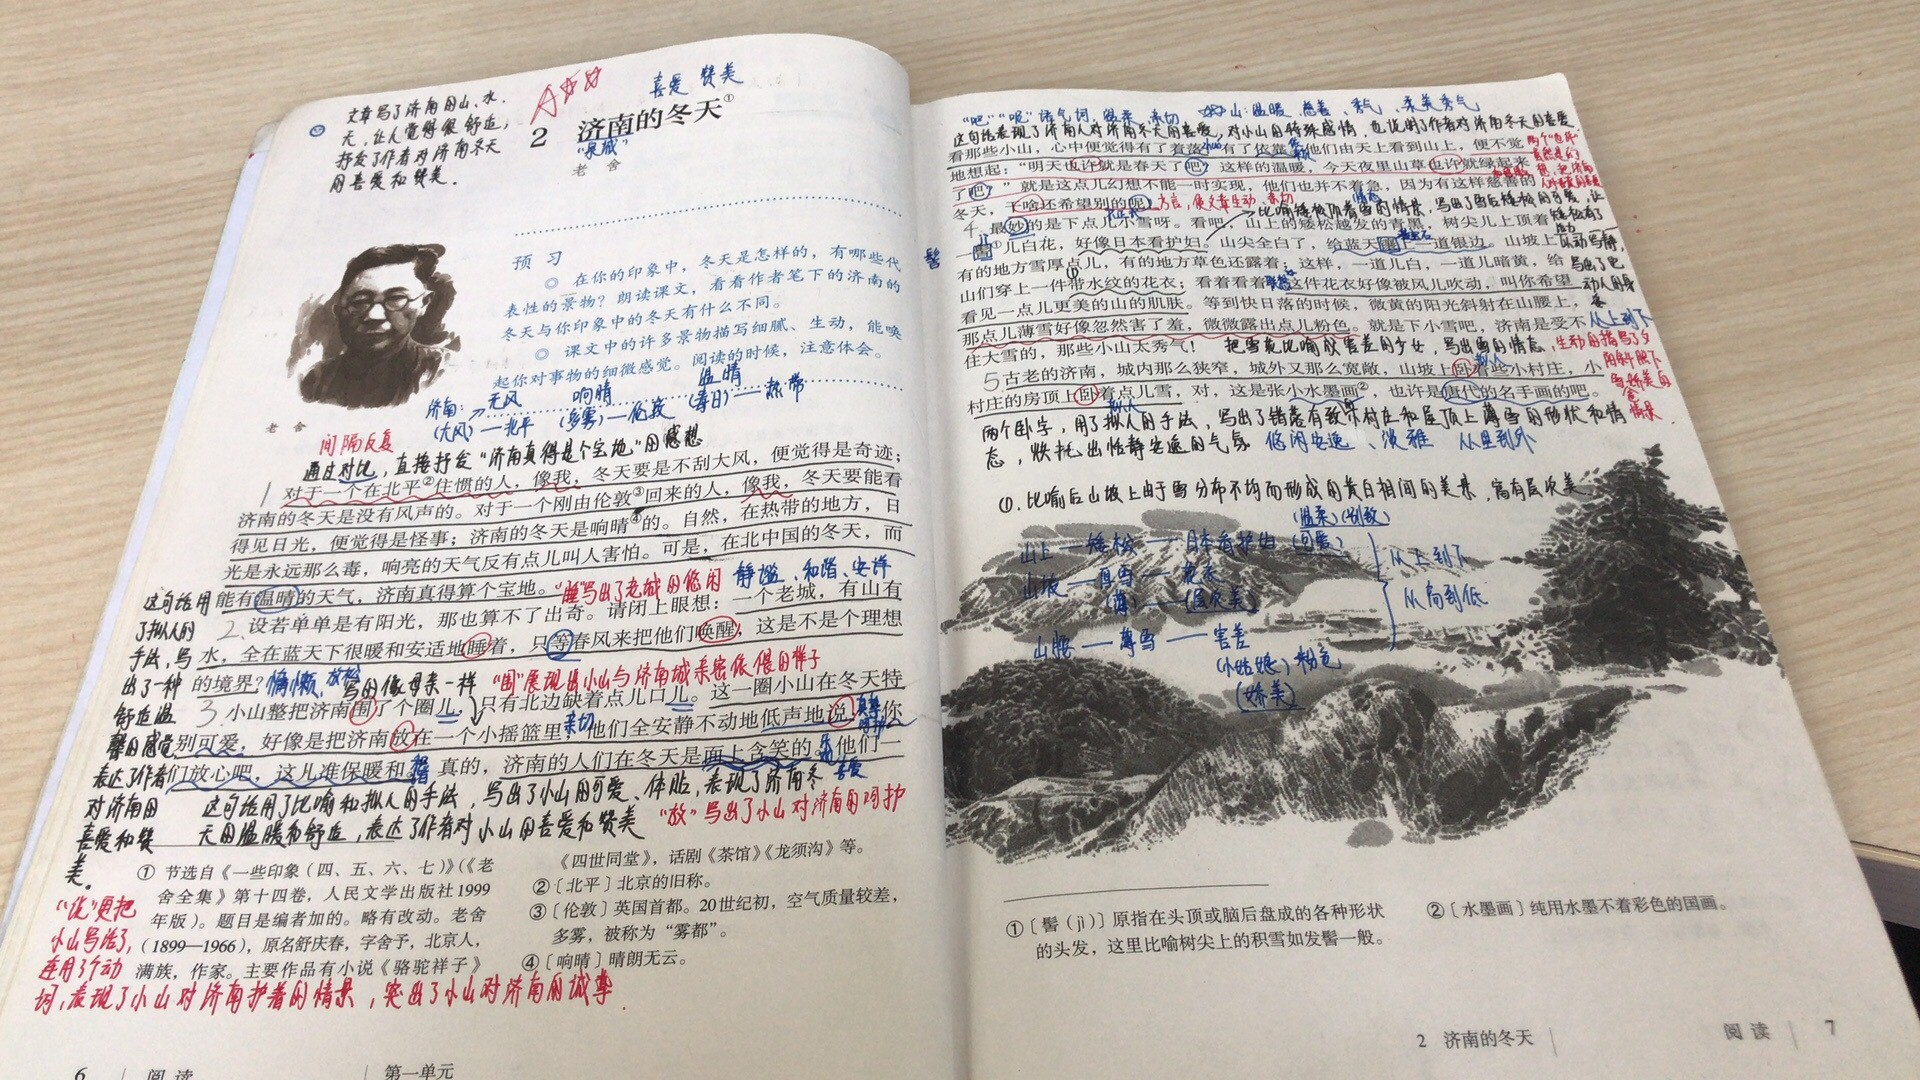 文章写了济南的山、水、
天，让人觉得很舒适，
抒发了作者对济南冬天
的喜爱和赞美.
喜爱 赞美
2 济南的冬天①
“泉城”
老 舍
预 习
◎ 在你的印象中，冬天是怎样的，有哪些代
表性的景物？朗读课文，看看作者笔下的济南的
冬天与你印象中的冬天有什么不同。
◎ 课文中的许多景物描写细腻、生动，能唤
起你对事物的细微感觉。阅读的时候，注意体会。
济南： 无风 响晴 温晴
(大风)—北平 (多雾)—伦敦 (毒日)—热带
老 舍
间隔反复
通过对比，直接抒发“济南真得是个宝地”的感想
1 对于一个在北平②住惯的人，像我，冬天要是不刮大风，便觉得是奇迹；
济南的冬天是没有风声的。对于一个刚由伦敦③回来的人，像我，冬天要能看
得见日光，便觉得是怪事；济南的冬天是响晴④的。自然，在热带的地方，日
光是永远那么毒，响亮的天气反有点儿叫人害怕。可是，在北中国的冬天，而
能有温晴的天气，济南真得算个宝地。
“睡”写出了老城的悠闲 静谧、和谐、安详
2、设若单单是有阳光，那也算不了出奇。请闭上眼想：一个老城，有山有
水，全在蓝天下很暖和安适地睡着，只等春风来把他们唤醒，这是不是个理想
的境界？
慵懒、放松 写的像母亲一样 “围”展现出小山与济南城亲密依偎的样子
3.小山整把济南围了个圈儿，只有北边缺着点儿口儿。这一圈小山在冬天特
别可爱，好像是把济南放在一个小摇篮里，他们全安静不动地低声地说：“你
们放心吧，这儿准保暖和。”真的，济南的人们在冬天是面上含笑的。他们一
亲切
喜爱
这句话用
了拟人的
手法，写
出了一种
舒适温
馨的感觉
表达了作者
对济南的
喜爱和赞
美。
这句话用了比喻和拟人的手法，写出了小山的可爱、体贴，表现了济南冬
天的温暖和舒适，表达了作者对小山的喜爱和赞美
“放”写出了小山对济南的呵护
① 节选自《一些印象（四、五、六、七）》（《老
舍全集》第十四卷，人民文学出版社1999
年版）。题目是编者加的。略有改动。老舍
（1899—1966），原名舒庆春，字舍予，北京人，
满族，作家。主要作品有小说《骆驼祥子》
《四世同堂》，话剧《茶馆》《龙须沟》等。
②〔北平〕北京的旧称。
③〔伦敦〕英国首都。20世纪初，空气质量较差，
多雾，被称为“雾都”。
④〔响晴〕晴朗无云。
更把
小山写活了，
连用3个动
词，表现了小山对济南护着的情景，突出了小山对济南的
6 阅读 第一单元
“吧”“呢”语气词， 亲切 山：温暖、慈善、秀气、柔美秀气
这句话表现了济南人对济南冬天的喜爱，对小山的特殊感情，也说明了作者对济南冬天的喜爱
看那些小山，心中便觉得有了着落，有了依靠。他们由天上看到山上，便不觉
zhuó
地想起：“明天也许就是春天了吧？这样的温暖，今天夜里山草也许就绿起来
了吧？”就是这点儿幻想不能一时实现，他们也并不着急，因为有这样慈善的
冬天，干啥还希望别的呢！
方言，使文章生动、亲切
比喻矮松顶着雪的情景，写出了雪后矮松的可爱，让
矮松有了
4、最妙的是下点儿小雪呀。看吧，山上的矮松越发的青黑，树尖儿上顶着
一髻①儿白花，好像日本看护妇。山尖全白了，给蓝天镶上一道银边。山坡上，
有的地方雪厚点儿，有的地方草色还露着；这样，一道儿白，一道儿暗黄，给
山们穿上一件带水纹的花衣；看着看着，这件花衣好像被风儿吹动，叫你希望
看见一点儿更美的山的肌肤。等到快日落的时候，微黄的阳光斜射在山腰上，
那点儿薄雪好像忽然害了羞，微微露出点儿粉色。就是下小雪吧，济南是受不
住大雪的，那些小山太秀气！
髻
以动写静，
写出了
动人的身
姿
从上到下
把雪花比喻成害羞的少女，写出雪的情态，生动的描写了夕
阳斜照下
情景
5古老的济南，城内那么狭窄，城外又那么宽敞，山坡上卧着些小村庄，小
村庄的房顶上卧着点儿雪，对，这是张小水墨画②，也许是唐代的名手画的吧。
拟人
两个卧字，用了拟人的手法，写出了错落有致村庄和屋顶上薄雪的形状和情
态，烘托出恬静安逸的气氛 悠闲安逸 淡雅 从里到外
①.比喻后山坡上由于雪分布不均而形成的黄白相间的美景，富有层次美
山上—矮松—日本看护妇 (温柔)(别致)
(可爱)
山坡—厚雪—花衣
(薄)—(层次美)
山腰—薄雪—害羞
(小姑娘)粉色
(娇美)
从上到下
从高到低
①〔髻（jì）〕原指在头顶或脑后盘成的各种形状
的头发，这里比喻树尖上的积雪如发髻一般。
②〔水墨画〕纯用水墨不着彩色的国画。
2 济南的冬天 阅读 7